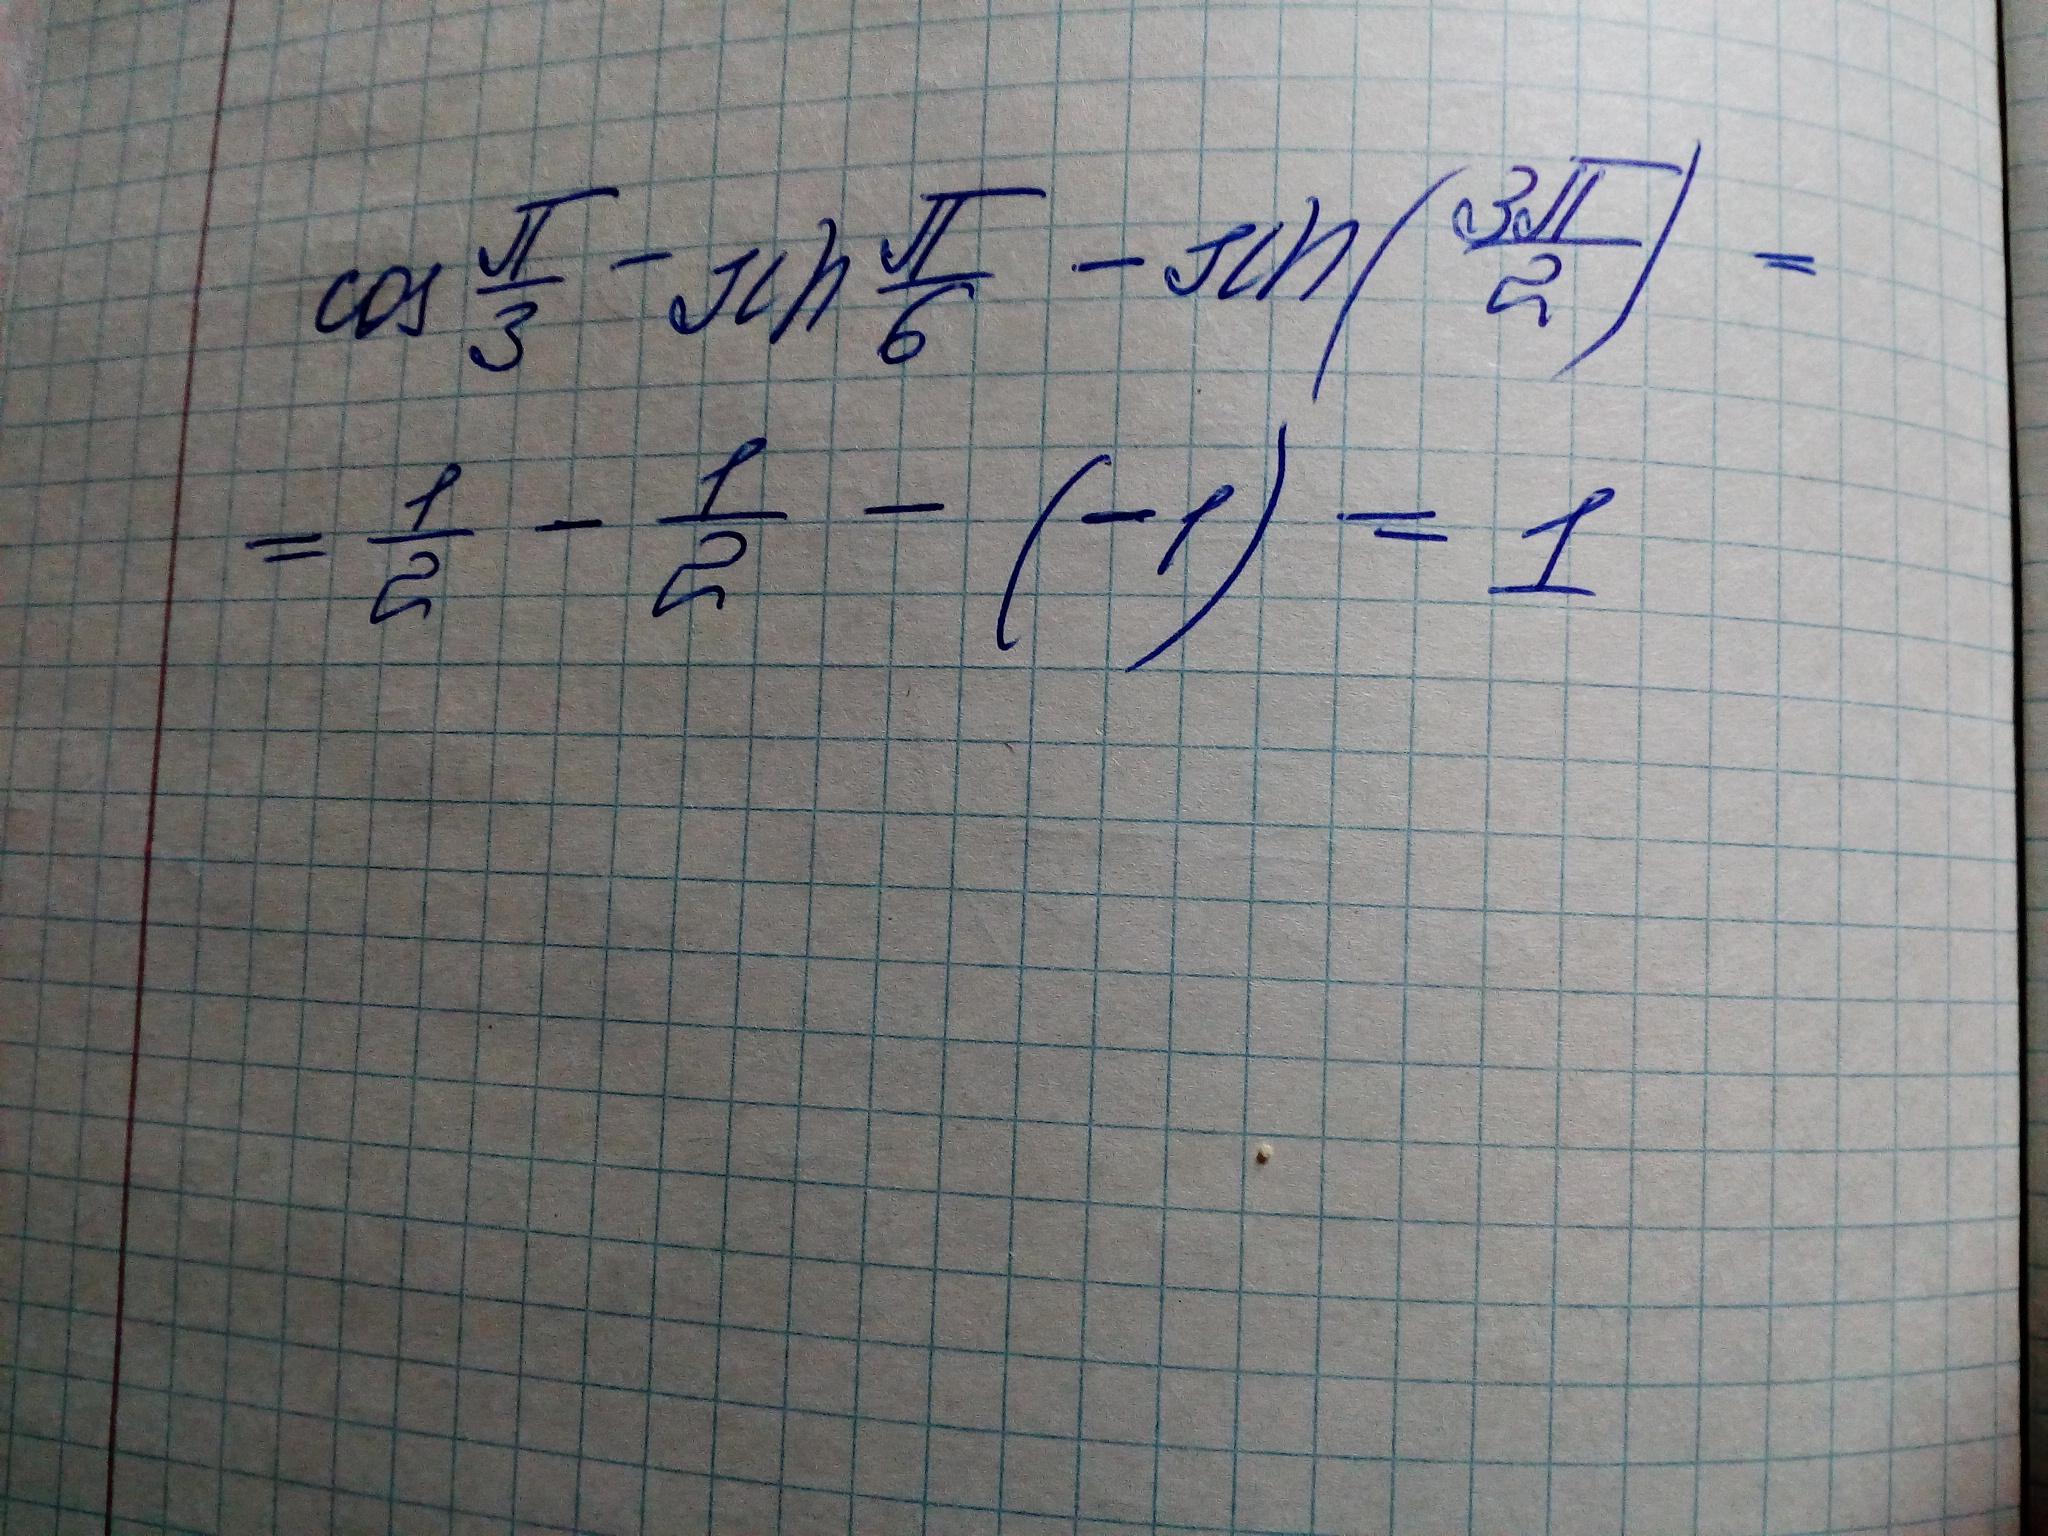 cos π/3 - sin π/6 - sin(3π/2) =
= 1/2 - 1/2 - (-1) = 1